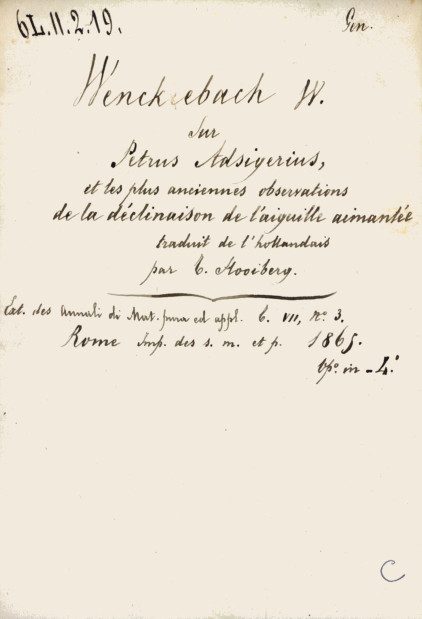 6L.11.2.19. Gen.
Wenckebach W.
Sur
Petrus Adsigerius,
et les plus anciennes observations
de la déclinaison de l'aiguille aimantée
traduit de l'hollandais
par T. Hooiberg.
Ext. des Annali di Mat. pura ed appl. T. VII, N.º 3.
Rome Imp. des s. m. et p. 1865.
in-4.º
C